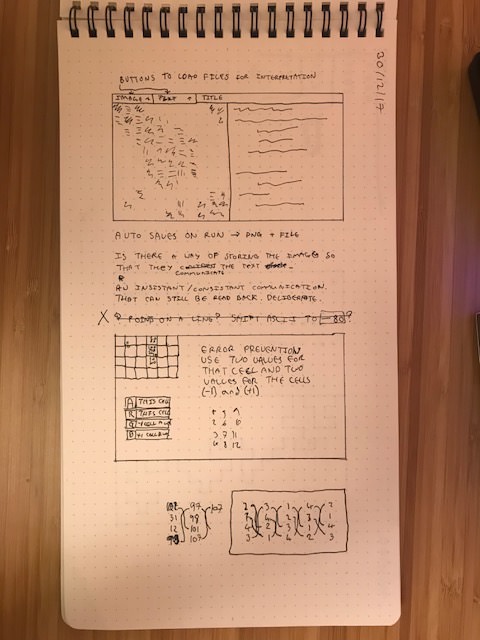 30/12/17
BUTTONS TO LOAD FILES FOR INTERPRETATION
IMAGE ↑ TEXT ↑ TITLE
AUTO SAVES ON RUN → PNG + FILE
IS THERE A WAY OF STORING THE IMAGES SO
THAT THEY THE TEXT
COMMUNICATE
AN INSISTANT/CONSISTANT COMMUNICATION.
THAT CAN STILL BE READ BACK. DELIBERATE.
X POINT ON A LINE? SHIFT ASCII TO -80?
ERROR PREVENTION
USE TWO VALUES FOR
THAT CELL AND TWO
VALUES FOR THE CELLS
(-1) and (+1)
A THIS CELL
R THIS CELL
G
B
2 6 10
3 7 11
4 8 12
97 107
31 98
12 101
98 107
2 3 1 4 2
3 1 4 2 3